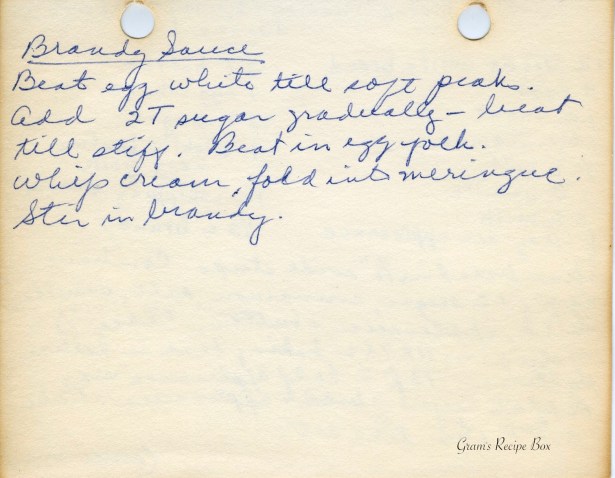 Brandy Sauce
Beat egg white till soft peaks.
Add 2T sugar gradually - beat
till stiff. Beat in egg yolk.
Whip cream, fold into meringue.
Stir in brandy.
Gram's Recipe Box